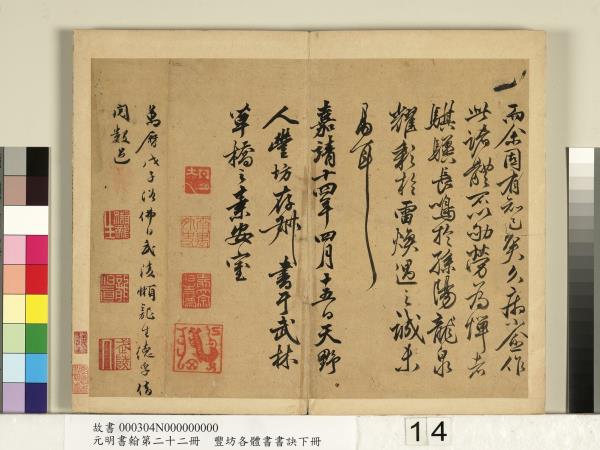 而余固有知己矣久病不
此諸體不以勤勞為憚者
騏驥長鳴於孫陽龍泉
耀彩於雷煥遇之誠未
易耳
嘉靖十四年四月十五日天野
人豐坊存叔書于武林
草橋之素安室
萬曆戊子浴佛日武陵懶龍生德孚
閱數過
故書 000304N000000000
元明書翰第二十二冊 豐坊各體書書訣下冊
14